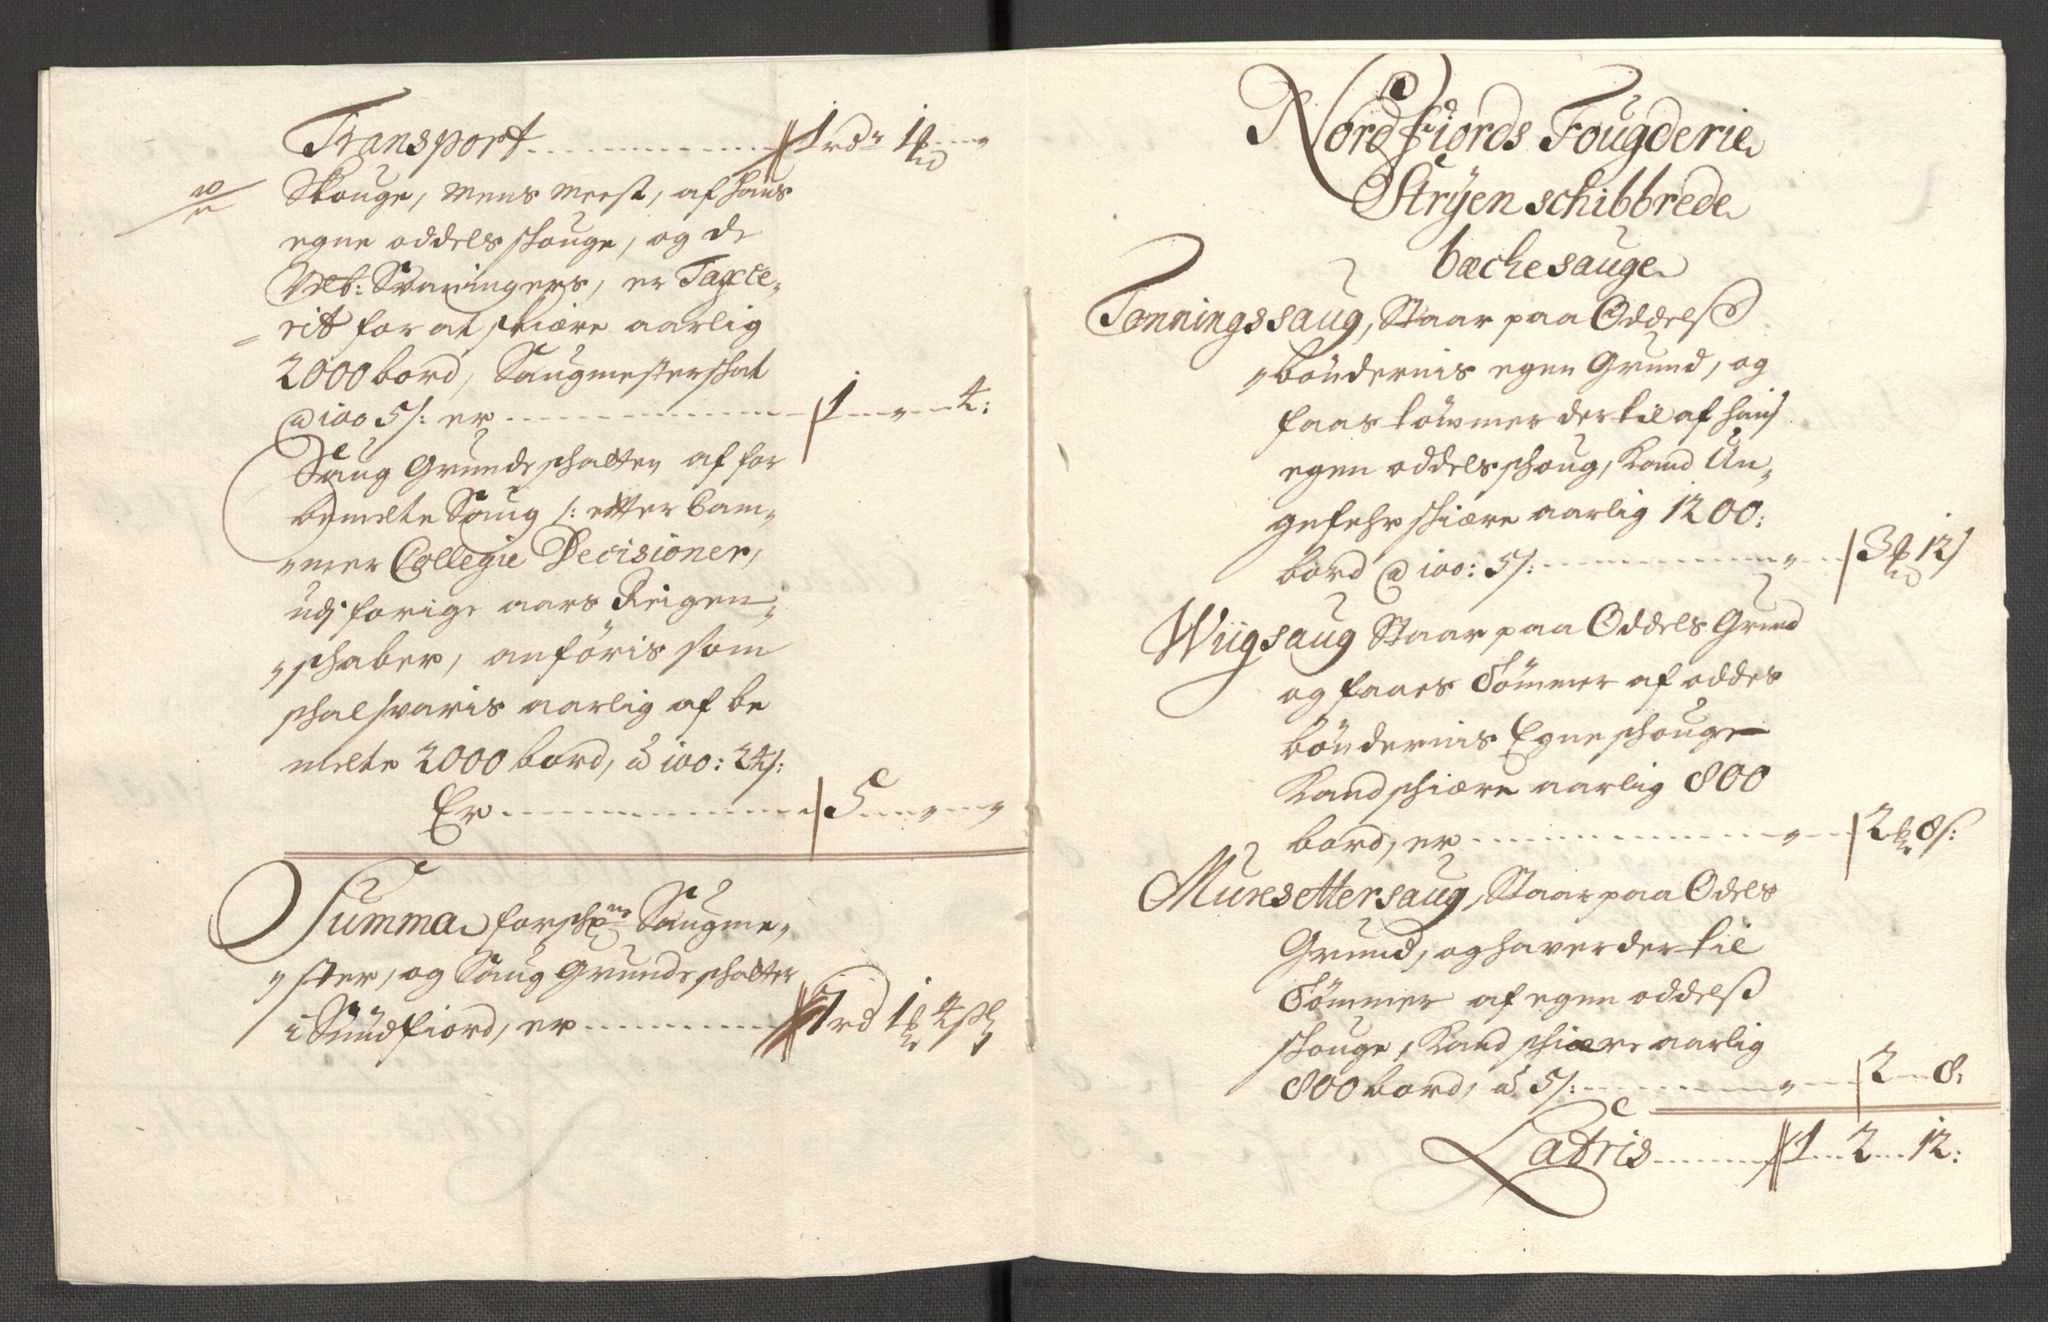 Transport 1 rdr 1 ₻ "
Skouge, mens meest, af hans
egne oddels skouge, og de
Vdb: Svaringers, er Taxce-
rit for at skiære aarlig
2000 bord, Saugmesterskat
@ 100 5 s: er 1 " 4:
Saug Grunde skatten af for
bemelte Saug /: efter Cam-
mer Collegie Decisioner,
udj forige aars Reigen-
skaber, anföris som
skal svaris aarlig af be
melte 2000 bord, à 100: 24 s:
Er 5 " "
Summa forschne Saugme-
ster, og Saug Grunde skatter
i Sundfiord, er 7 rd 1 4 sk
Nordfiords Fougderie
Stryen schibbrede
bæche sauge
Tonningssaug, Staar paa Oddelss
böndernis egen Grund, og
faar tömmer der til af hans
egen oddels skoug, Kand Un-
gefehr skiære aarlig 1200:
bord @ 100: 5 s: 3 12 s
Wiigsaug Staar paa Oddels Grund
og faaes Tömmer af oddes
böndernis Egne skouge
Kand skiære aarlig 800
bord, er 2 8 s:
Muresettersaug, Staar paa Odels
Grund, og haver der til
Tömmer af egen oddelss
skouge, Kand skiære aarlig
800 bord, à 5 s: 2 8
Latris 1 2 12: